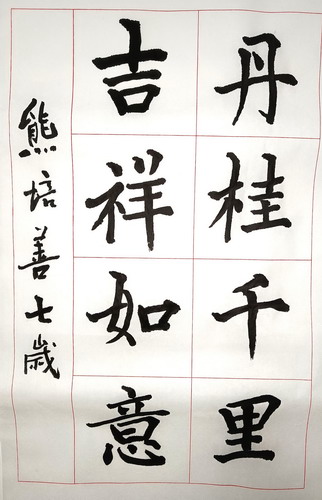 丹桂千里
吉祥如意
熊培善七歲